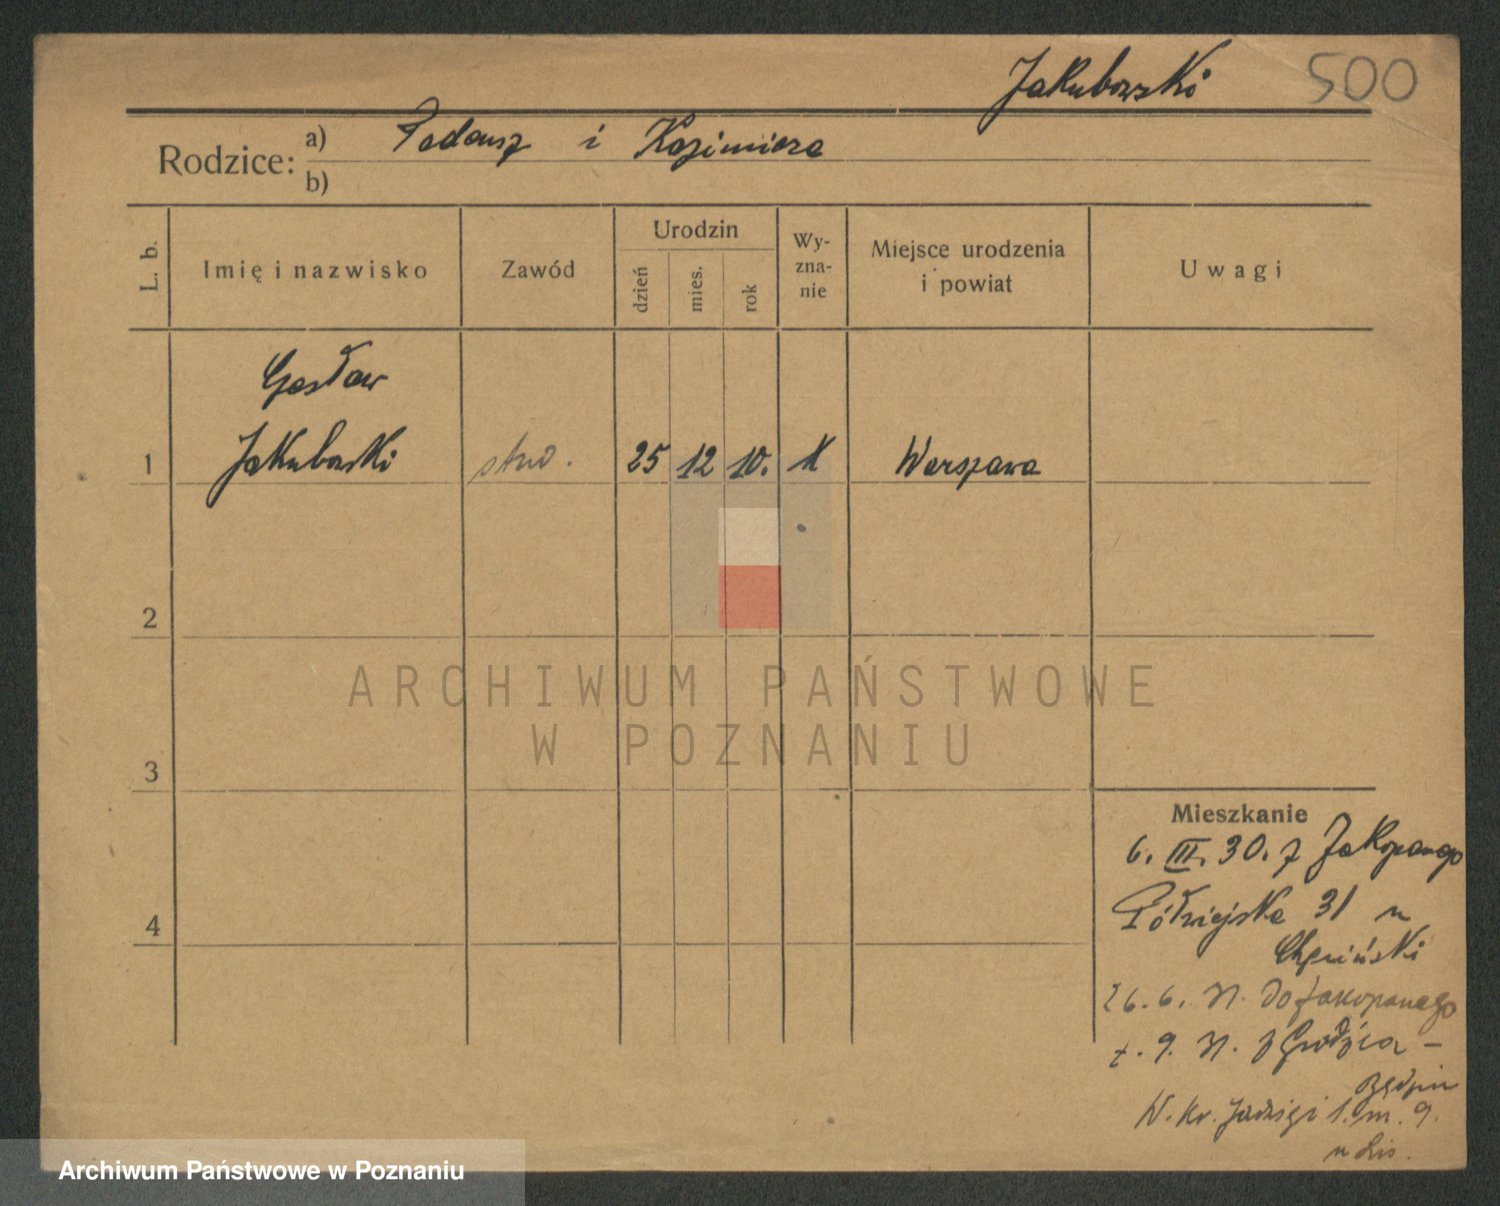 Jakubowski 500
Rodzice: a) Tadeusz i Kazimiera
b)
L. b. Imię i nazwisko Zawód Urodzin dzień mies. rok Wyzna-nie Miejsce urodzenia i powiat Uwagi
Gosław
1 Jakubowski stud. 25 12 10. K Warszawa
2
ARCHIWUM PAŃSTWOWE
W POZNANIU
3
Mieszkanie
6. III. 30. z Zakopanego
Półwiejska 31 u
4
26. 6. do Zakopanego
9. z Grodźca -
Będzin
W. Kr. Jadwigi 1. m. 9.
u Lis.
Archiwum Państwowe w Poznaniu